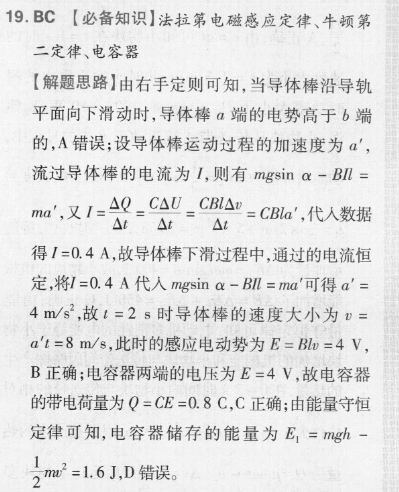 19. BC 【必备知识】法拉第电磁感应定律、牛顿第
二定律、电容器
【解题思路】由右手定则可知,当导体棒沿导轨
平面向下滑动时,导体棒 a 端的电势高于 b 端
的,A 错误;设导体棒运动过程的加速度为 a′,
流过导体棒的电流为 I,则有 mgsin α − BIl =
ma′,又 I = ΔQ/Δt = CΔU/Δt = CBlΔv/Δt = CBla′,代入数据
得 I = 0.4 A,故导体棒下滑过程中,通过的电流恒
定,将I = 0.4 A 代入 mgsin α − BIl = ma′可得 a′ =
4 m/s²,故 t = 2 s 时导体棒的速度大小为 v =
a′t = 8 m/s,此时的感应电动势为 E = Blv = 4 V,
B 正确;电容器两端的电压为 E = 4 V,故电容器
的带电荷量为 Q = CE = 0.8 C,C 正确;由能量守恒
定律可知,电容器储存的能量为 E₁ = mgh −
1/2 mv² = 1.6 J,D 错误。